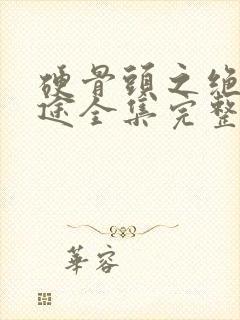 硬骨頭之絶
途全集完整
華容